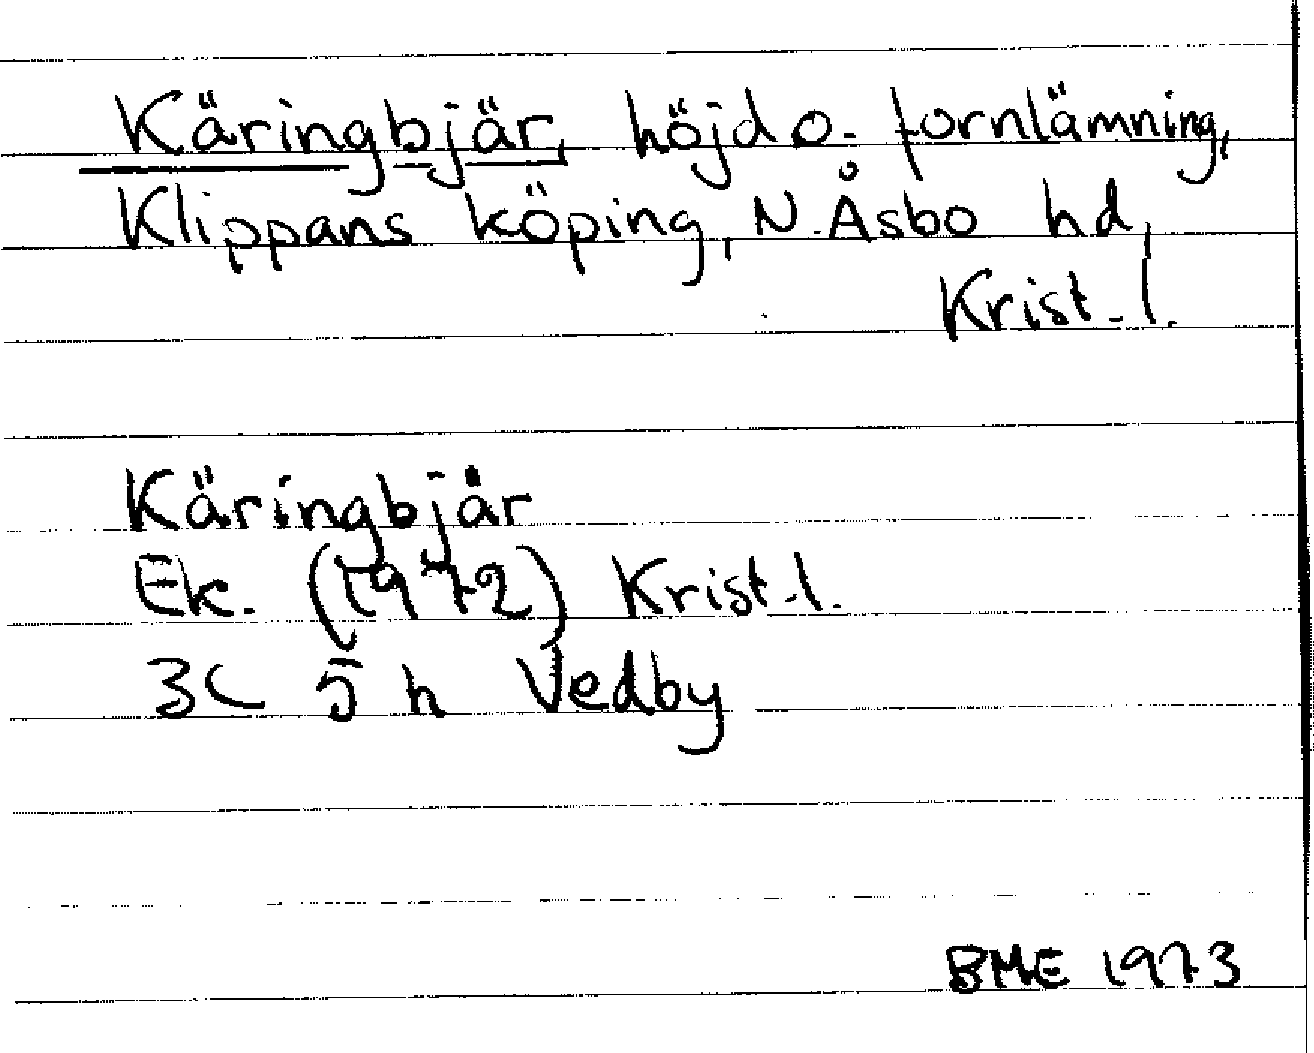 Käringbjär, höjd o. fornlämning,
Klippans köping, N. Åsbo hd,
Krist. l.
Käringbjär
Ek. (1972) Krist. l.
3C 5 h Vedby
BME 1973